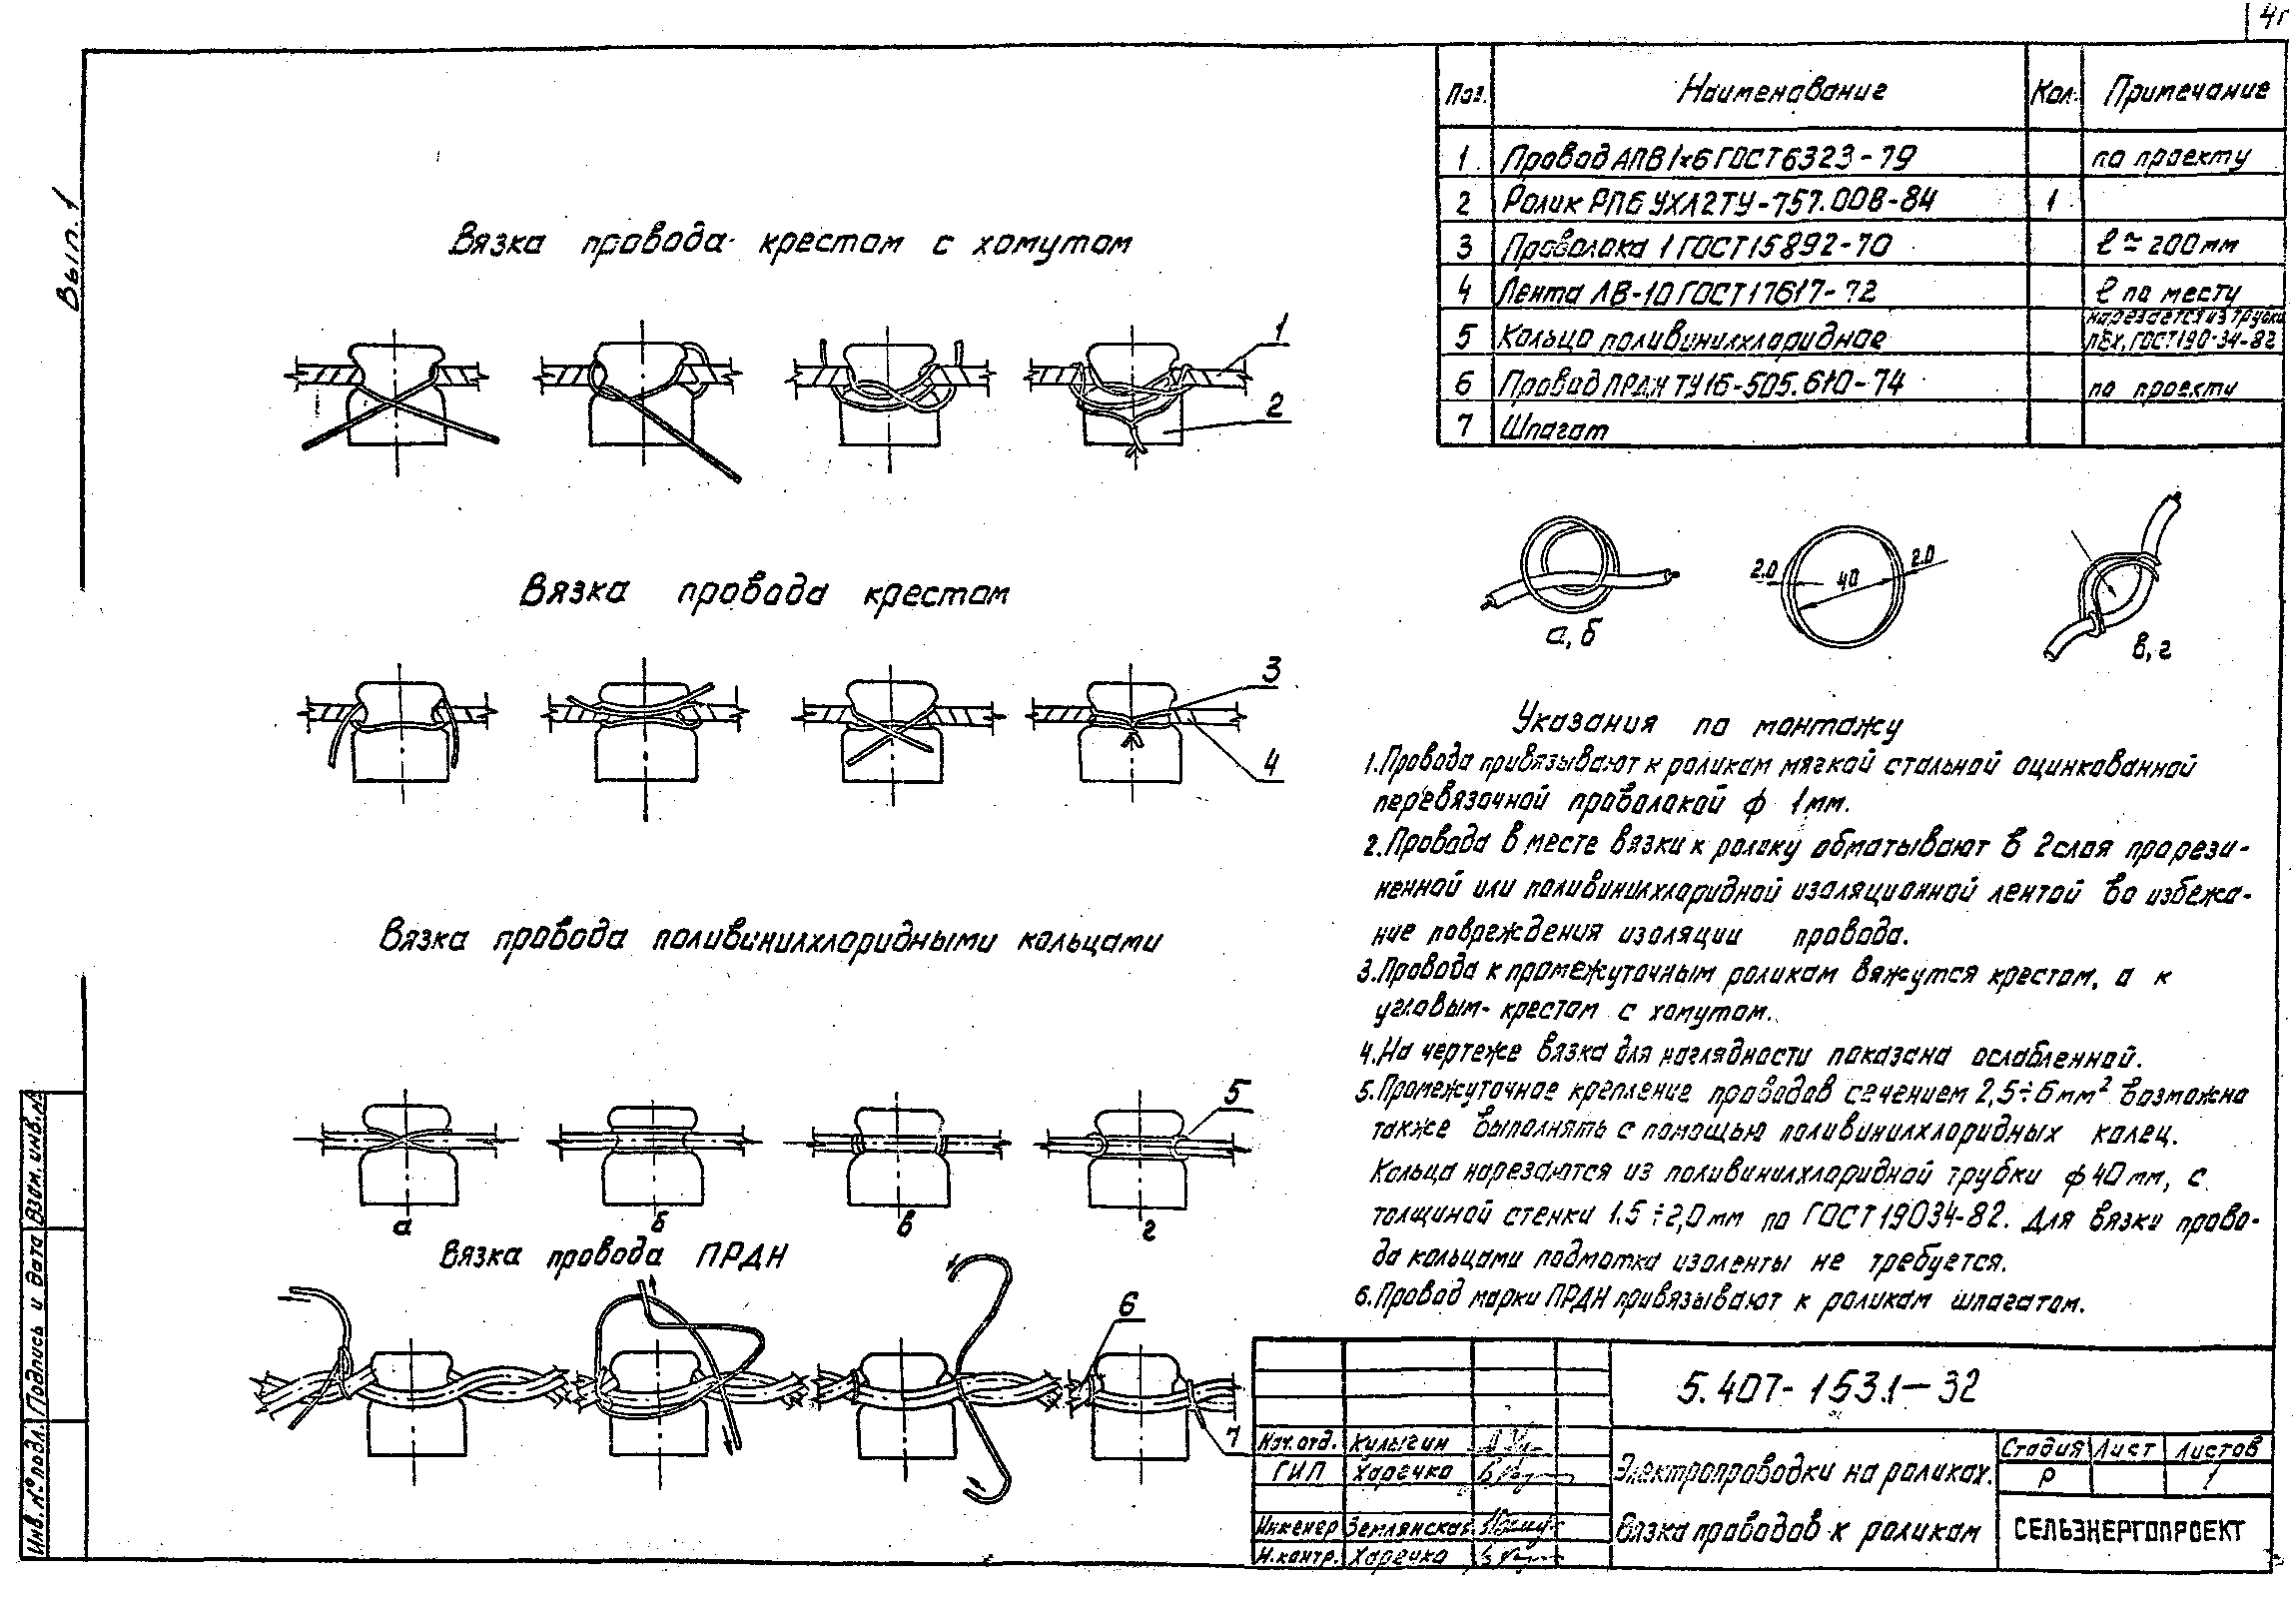 Вып. 1
Вязка провода крестом с хомутом
1
2
Вязка провода крестом
3
4
Вязка провода поливинилхлоридными кольцами
5
а б в г
Вязка провода ПРДН
6
7
Поз. Наименование Кол. Примечание
1 Провод АПВ 1×6 ГОСТ 6323-79 по проекту
2 Ролик РП6 УХЛ2 ТУ-757.008-84 1
3 Проволока 1 ГОСТ 15892-70 ℓ ≃ 200мм
4 Лента ЛВ-10 ГОСТ 17617-72 ℓ по месту
5 Кольцо поливинилхлоридное нарезается из трубки ПВХ, ГОСТ 190-34-82
6 Провод ПРДН ТУ16-505.610-74 по проекту
7 Шпагат
а, б
2.0 40 2.0
в, г
Указания по монтажу
1. Провода привязывают к роликам мягкой стальной оцинкованной
перевязочной проволокой ф 1мм.
2. Провода в месте вязки к ролику обматывают в 2 слоя прорези-
ненной или поливинилхлоридной изоляционной лентой во избежа-
ние повреждения изоляции провода.
3. Провода к промежуточным роликам вяжутся крестом, а к
угловым- крестом с хомутом.
4. На чертеже вязка для наглядности показана ослабленной.
5. Промежуточное крепление проводов сечением 2,5÷6мм² возможно
также выполнять с помощью поливинилхлоридных колец.
Кольца нарезаются из поливинилхлоридной трубки ф40мм, с
толщиной стенки 1.5÷2,0мм по ГОСТ 19034-82. Для вязки прово-
да кольцами подмотка изоленты не требуется.
6. Провод марки ПРДН привязывают к роликам шпагатом.
5.407-153.1-32
Нач. отд. Кулыгин
ГИП Харечко
Инженер Землянская
Н.контр. Харечко
Электропроводки на роликах.
Вязка проводов к роликам
Стадия Лист Листов
Р 1
СЕЛЬЭНЕРГОПРОЕКТ
Инв. № подл. Подпись и дата Взам. инв. №